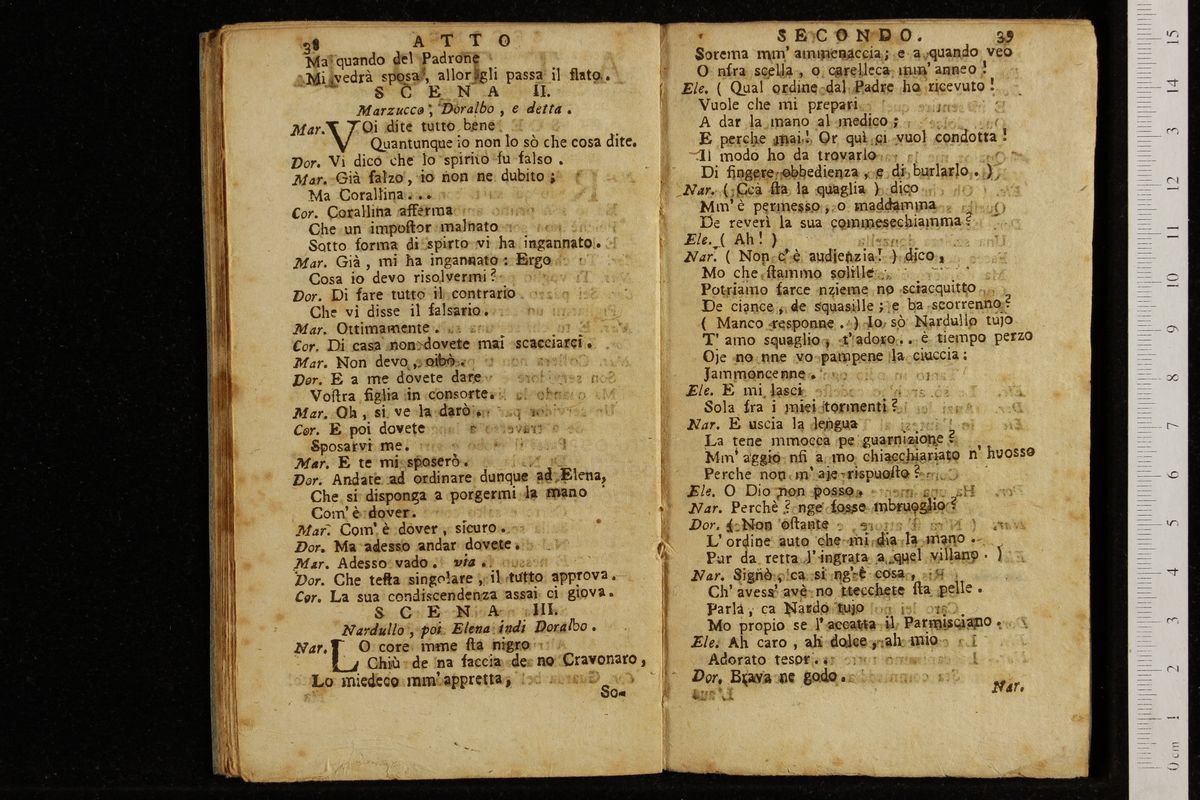 38 ATTO
Ma quando del Padrone
Mi vedrà sposa, allor gli passa il flato.
SCENA II.
Marzucco, Doralbo, e detta.
Mar. VOi dite tutto bene
Quantunque io non lo sò che cosa dite.
Dor. Vi dico che lo spirito fu falso.
Mar. Già falzo, io non ne dubito;
Ma Corallina...
Cor. Corallina afferma
Che un impoſtor malnato
Sotto forma di spirto vi ha ingannato.
Mar. Già, mi ha ingannato: Ergo
Cosa io devo risolvermi?
Dor. Di fare tutto il contrario
Che vi disse il falsario.
Mar. Ottimamente.
Cor. Di casa non dovete mai scacciarci.
Mar. Non devo, oibò.
Dor. E a me dovete dare
Voſtra figlia in consorte.
Mar. Oh, si ve la darò.
Cor. E poi dovete
Sposarvi me.
Mar. E te mi sposerò.
Dor. Andate ad ordinare dunque ad Elena,
Che si disponga a porgermi la mano
Com' è dover.
Mar. Com' è dover, sicuro.
Dor. Ma adesso andar dovete.
Mar. Adesso vado. via.
Dor. Che teſta singolare, il tutto approva.
Cor. La sua condiscendenza assai ci giova.
SCENA III.
Nardullo, poi Elena indi Doralbo.
Nar. LO core mme ſta nigro
Chiù de na faccia de no Cravonaro,
Lo miedeco mm' appretta,
So-
SECONDO. 39
Sorema mm' ammenaccia; e a quando veo
O nfra scella, o carelleca mm' anneo!
Ele. ( Qual ordine dal Padre ho ricevuto!
Vuole che mi prepari
A dar la mano al medico;
E perche mai! Or quì ci vuol condotta!
Il modo ho da trovarlo
Di fingere obbedienza, e di burlarlo. )
Nar. ( Ccà ſta la quaglia ) dico
Mm' è permesso, o maddamma
De reverì la sua commesechiamma?
Ele. ( Ah! )
Nar. ( Non c' è audienzia! ) dico,
Mo che ſtammo solille
Potriamo farce nzieme no sciacquitto
De ciance, de squasille; e ba scorrenno?
( Manco responne. ) Io sò Nardullo tujo
T' amo squaglio, t' adoro.. è tiempo perzo
Oje no nne vo pampene la ciuccia:
Jammoncenne.
Ele. E mi lasci
Sola fra i miei tormenti?
Nar. E uscia la lengua
La tene mmocca pe guarnizione?
Mm' aggio nfi a mo chiacchiariato n' huosso
Perche non m' aje rispuoſto?
Ele. O Dio non posso.
Nar. Perchè? nge fosse mbruoglio?
Dor. ( Non oſtante
L' ordine auto che mi dia la mano.
Pur da retta l' ingrata a quel villano. )
Nar. Signò, ca si ng' è cosa,
Ch' avess' avè no ttecchete ſta pelle.
Parla, ca Nardo tujo
Mo propio se l' accatta il Parmisciano.
Ele. Ah caro, ah dolce, ah mio
Adorato tesor..
Dor. Brava ne godo.
Nar.